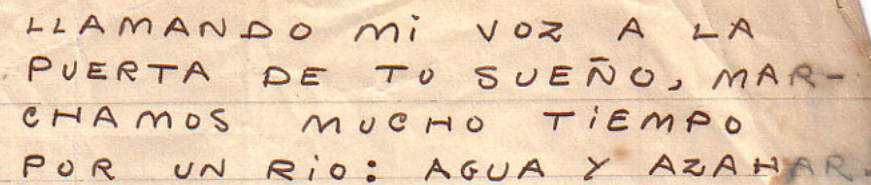 LLAMANDO Mi VOZ A LA
PUERTA DE TU SUEÑO, MAR-
CHAMOS MUCHO TiEMPO
POR UN RiO: AGUA Y AZAHAR.